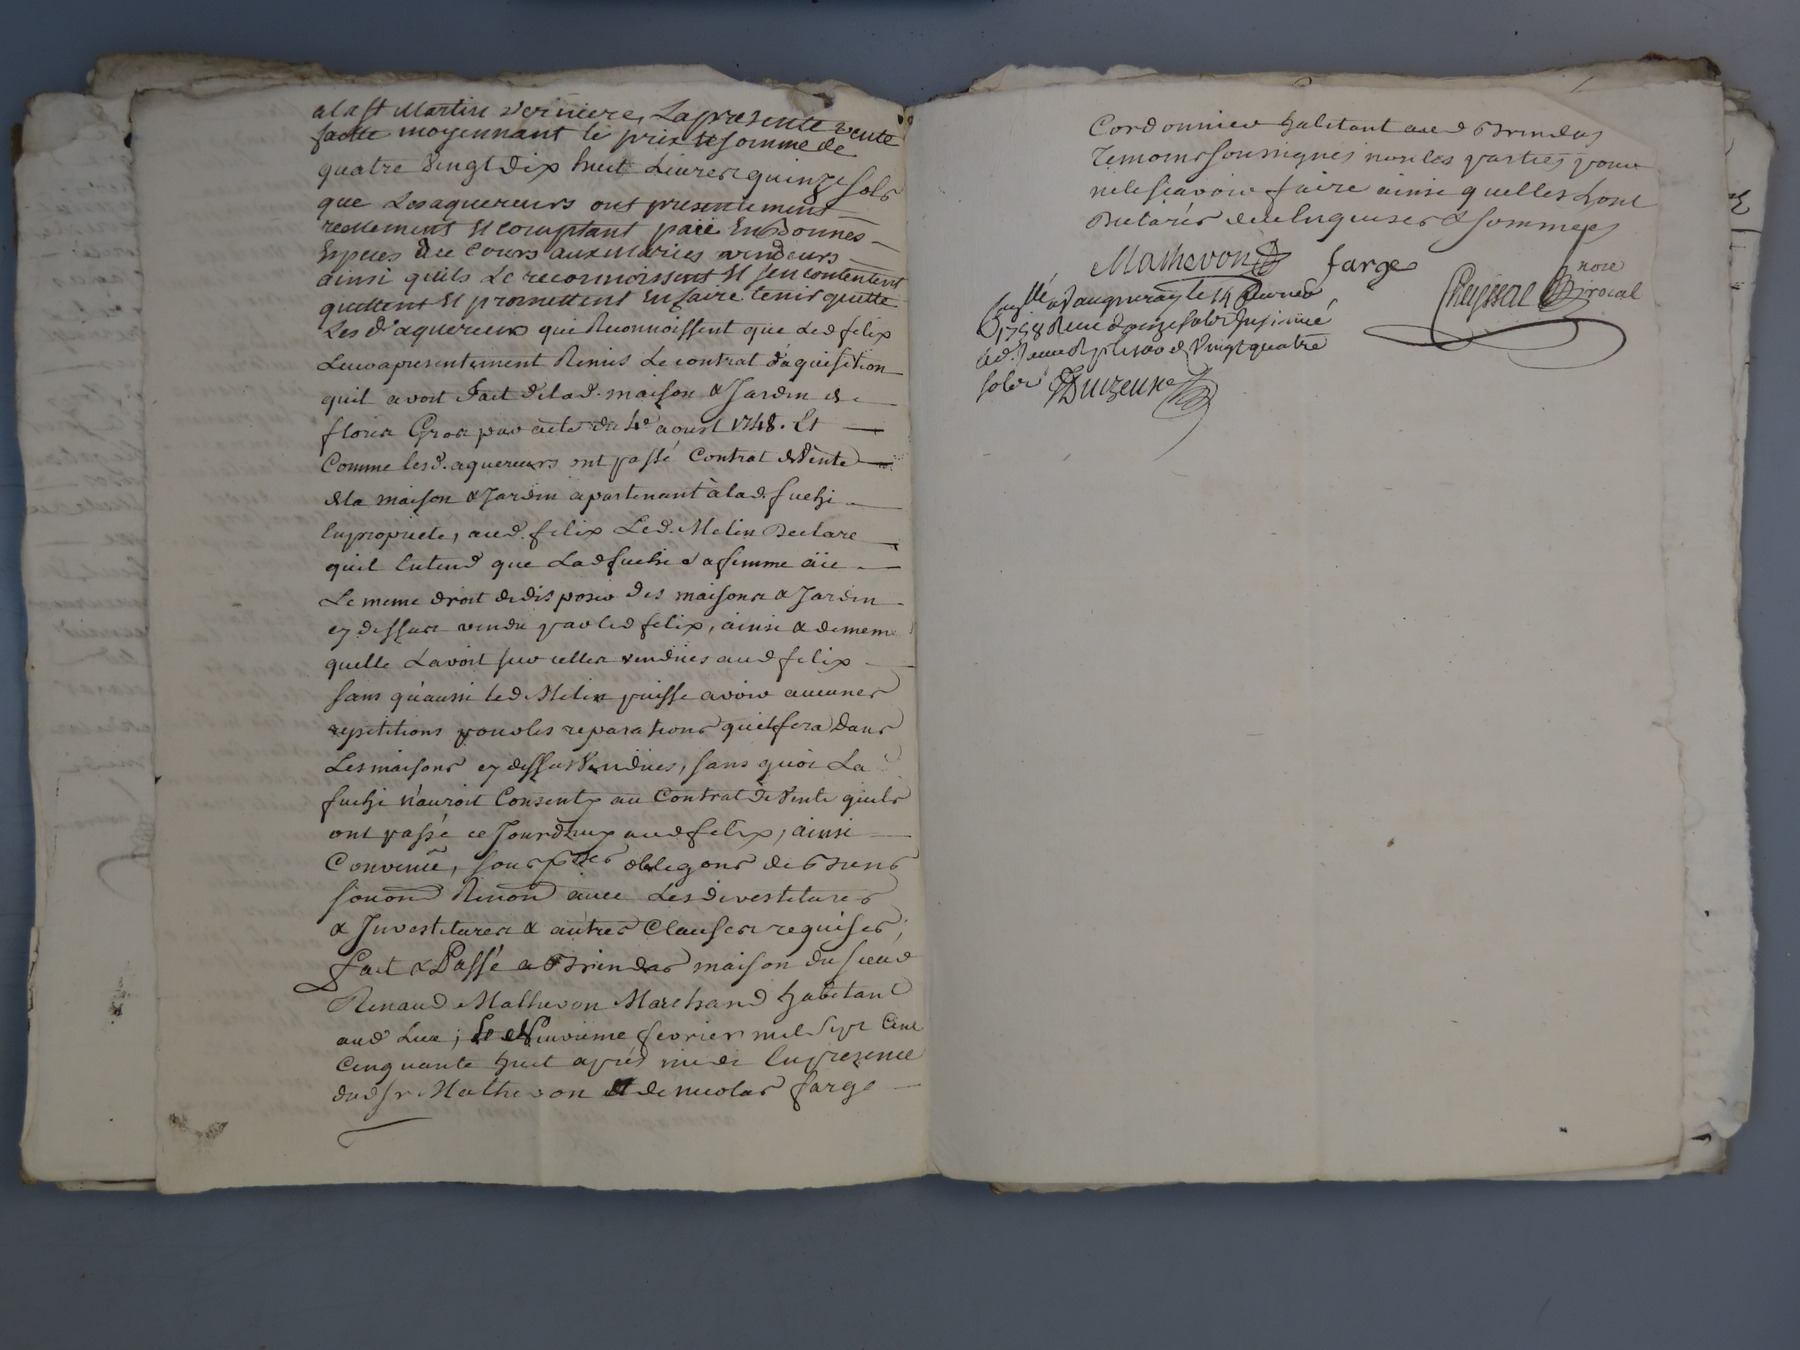 a la st Martin derniere, La presente vente
faitte moyennant le prix et somme de
quatre vingt dix huit Livres quinze sols
que Les aquereurs ont presentement
reellement et comptant paié En bonnes
Especes de Cours aux maries vendeurs
ainsi quils Le reconnoissent et s'en contentent
quittent et promettent En faire tenir quitte
Les d. aquereurs qui Reconnoissent que Led felix
Leur a presentement Remis Le contrat d'aquisition
quil avoit fait de lad. maison & Jardin de
fleurie Gros par acte du 4e aoust 1748. Et
Comme lesd. aquereurs ont passé Contrat de Vente
de la maison & Jardin apartenant à lad. fuchi
En propriete, aud. felix Led. Melin Declare
quil Entend que Lad fuchi sa femme aïe
Le meme droit de disposer des maisons & Jardin
cy dessus vendu par led felix, ainsi & de meme
quelle Lavoit sur celles vendües aud felix
sans quaussi led Melin puisse avoir aucunes
repetitions pour les reparations quil fera Dans
Les maisons cy dessus Vendües, sans quoi La
fuchi n'auroit Consenty au Contrat de Vente quils
ont passé ce Jourd'huy aud felix, ainsi
Convenu, sous obligons de Biens
Renon avec Les devestitures
& Investitures & autres Clauses requises,
fait & Passé a Brindas maison du sieur
Renaud Mathevon Marchand habitant
aud Lieu; Le Neuvieme fevrier mil sept Cent
Cinquante huit après midi En presence
dud sr Mathevon et de nicolas farge
Cordonnier habitant aud Brindas
Temoins soussignés non les parties pour
ne le scavoir faire ainsi quelles L'ont
Declarés de ce Enquises & sommees
Mathevon farge
Cheyssac nore roial
à Vaugneray le 14 fevrier
1758 Reçu douze sols
vingt quatre
sols Duizeune